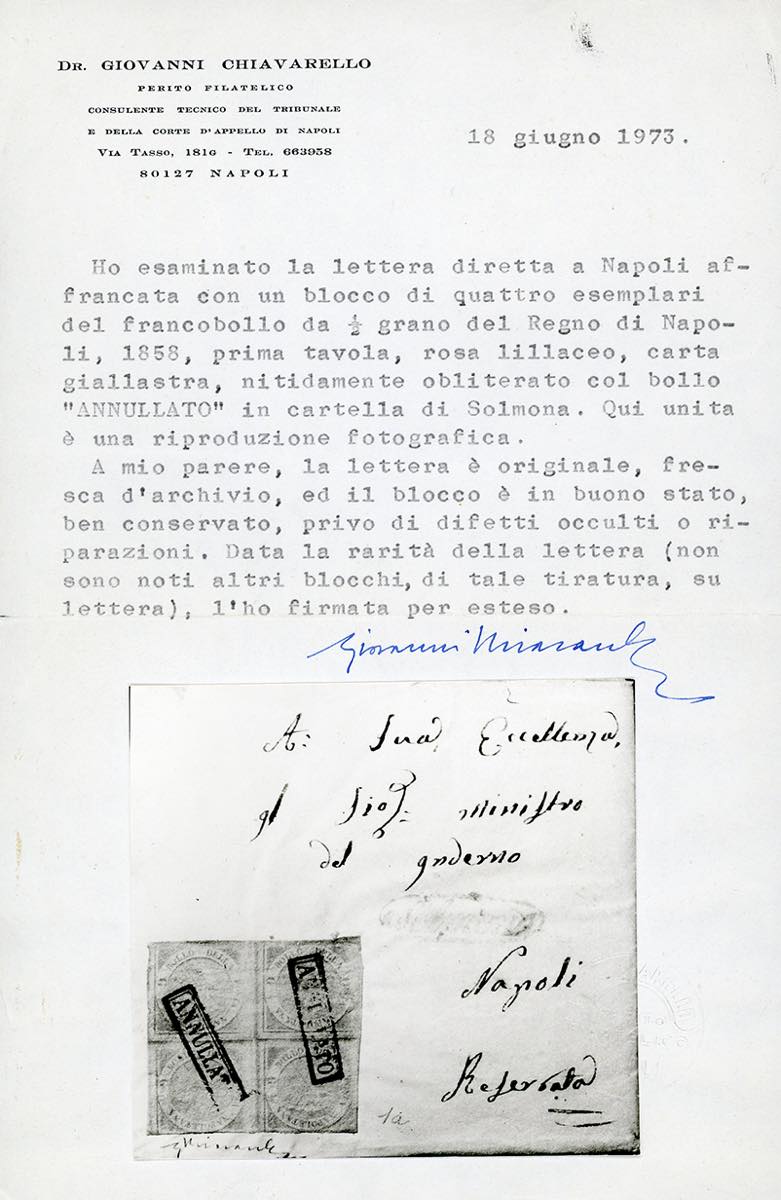 DR. GIOVANNI CHIAVARELLO
PERITO FILATELICO
CONSULENTE TECNICO DEL TRIBUNALE
E DELLA CORTE D'APPELLO DI NAPOLI
VIA TASSO, 181G - TEL. 663958
80127 NAPOLI
18 giugno 1973.
Ho esaminato la lettera diretta a Napoli af-
francata con un blocco di quattro esemplari
del francobollo da ½ grano del Regno di Napo-
li, 1858, prima tavola, rosa lillaceo, carta
giallastra, nitidamente obliterato col bollo
"ANNULLATO" in cartella di Solmona. Qui unita
è una riproduzione fotografica.
A mio parere, la lettera è originale, fre-
sca d'archivio, ed il blocco è in buono stato,
ben conservato, privo di difetti occulti o ri-
parazioni. Data la rarità della lettera (non
sono noti altri blocchi, di tale tiratura, su
lettera), l'ho firmata per esteso.
Giovanni Chiavarello
A: Sua Eccellenza,
ministro
del
Napoli
Reservata
ANNULLAT
1a